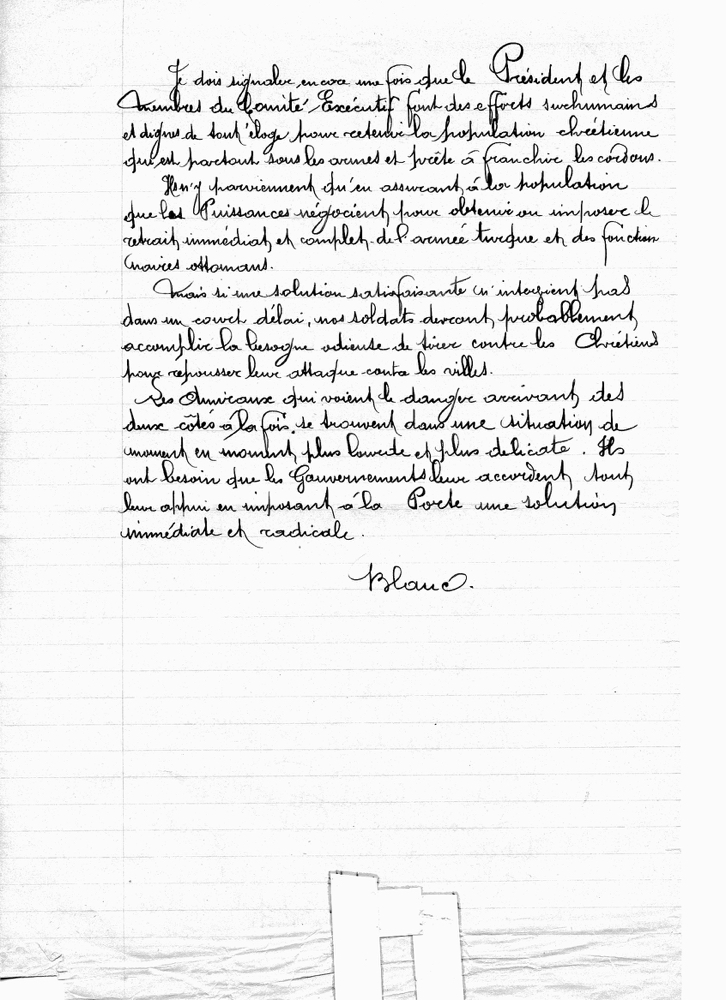 Je dois signaler encore une fois que le Président et les
Membres du Comité Exécutif font des efforts surhumains
et dignes de tout éloge pour retenir la population chrétienne
qui est partout sous les armes et prête à franchir les cordons.
Ils n'y parviennent qu'en assurant à la population
que les Puissances négocient pour obtenir ou imposer le
retrait immédiat et complet de l'armée turque et des fonction
naires ottomans.
Mais si une solution satisfaisante n'intervient pas
dans un court délai, nos soldats devront probablement
accomplir la besogne odieuse de tirer contre les Chrétiens
pour répousser leur attaque contre les villes.
Les Amiraux qui voient le danger arrivant des
deux côtés à la fois, se trouvent dans une situation de
moment en moment plus lourde et plus delicate. Ils
ont besoin que les Gouvernements leur accordent tout
leur appui en imposant à la Porte une solution
immédiate et radicale.
Blanc.